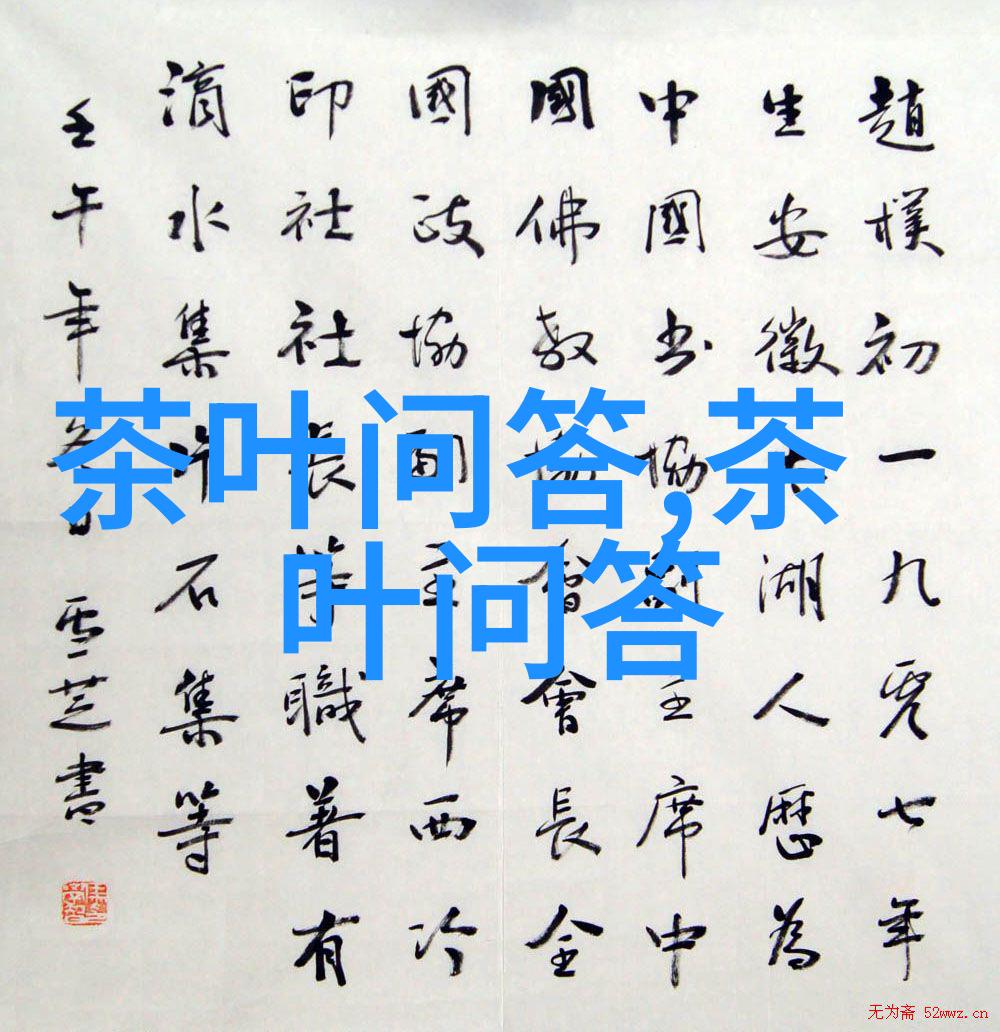 趙樸初一九零七年
生安徽太湖人歷為
中國书協副主席中
國佛教協會會長全
國政協副主席西冷
印社社長等職著有
滴水集片石集等
壬午年冬 雪芝書
茶叶问答,茶
叶问答
无为斋 52wwz.cn